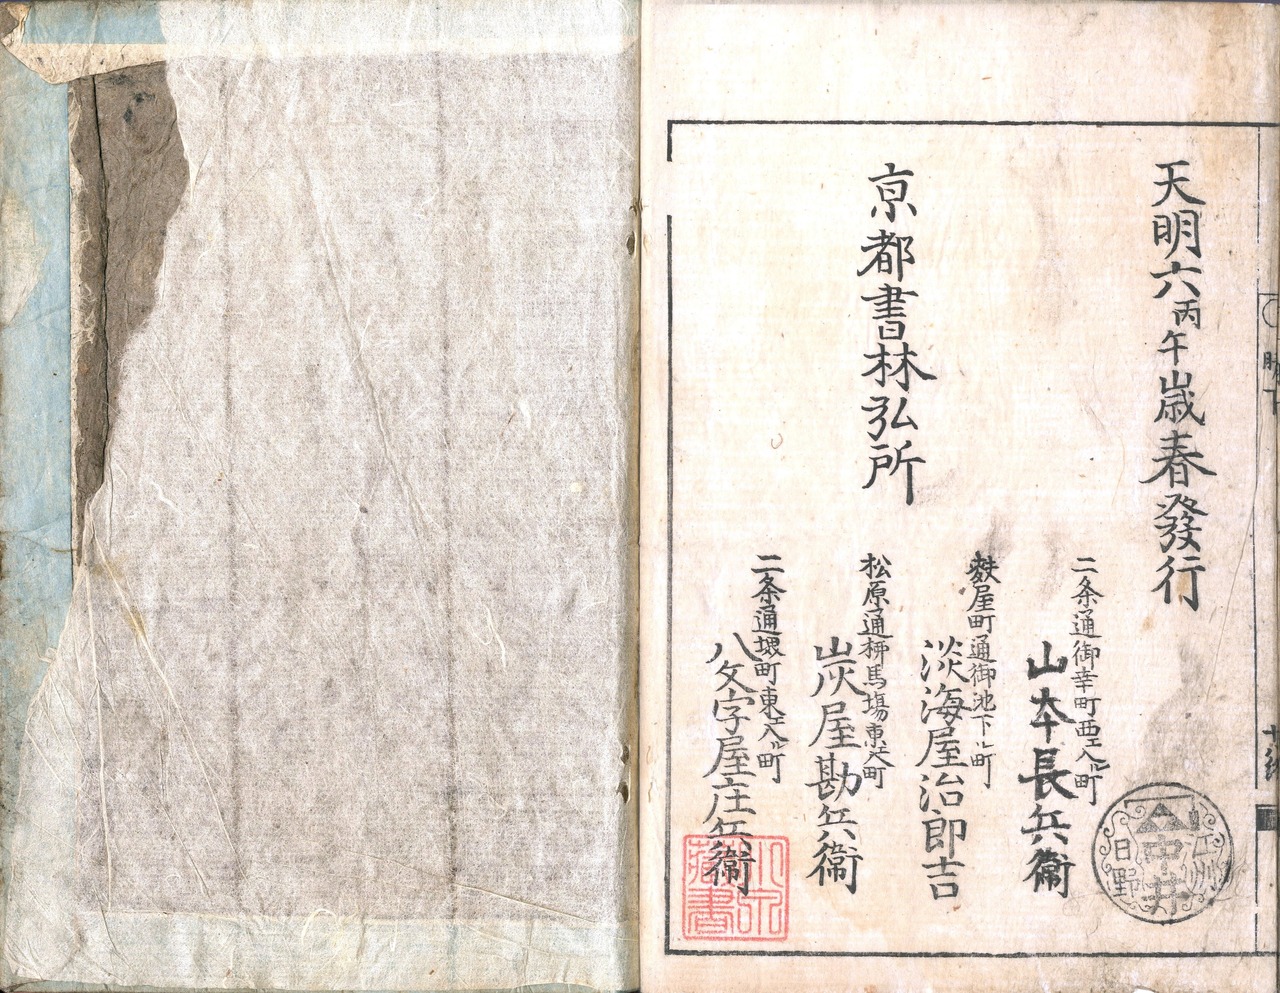 天明六丙午歳春發行
京都書林弘所
二条通御幸町西エ入ル町
山本長兵衞
麩屋町通御池下ル町
淡海屋治郎吉
松原通柳馬場東エ入町
炭屋勘兵衞
二条通堺町東エ入ル町
八文字屋庄兵衞
江州
中井
日野
藏書